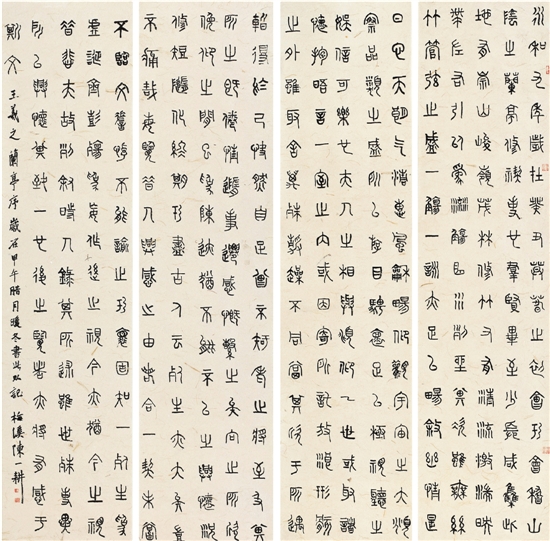 永和九年歲在癸丑暮春之初會于會稽山
陰之蘭亭修禊事也群賢畢至少長咸集此
地有崇山峻嶺茂林修竹又有清流激湍映
帶左右引以爲流觴曲水列坐其次雖無絲
竹管弦之盛一觴一詠亦足以暢敘幽情是
日也天朗氣清惠風和暢仰觀宇宙之大俯
察品類之盛所以遊目騁懷足以極視聽之
娛信可樂也夫人之相與俯仰一世或取諸
懷抱悟言一室之內或因寄所託放浪形骸
之外雖取舍萬殊靜躁不同當其欣于所遇
暫得於己快然自足曾不知老之將至及其
所之既倦情隨事遷感慨係之矣向之所欣
俛仰之間已爲陳跡猶不能不以之興懷況
修短隨化終期於盡古人云死生亦大矣豈
不痛哉每覽昔人興感之由若合一契未嘗
不臨文嗟悼不能喻之於懷固知一死生爲
虛誕齊彭殤爲妄作後之視今亦猶今之視
昔悲夫故列敘時人錄其所述雖世殊事異
所以興懷其致一也後之覽者亦將有感於
斯文 王羲之蘭亭序 歲在甲午臘月暖冬書此以記 梅溪陳一耕